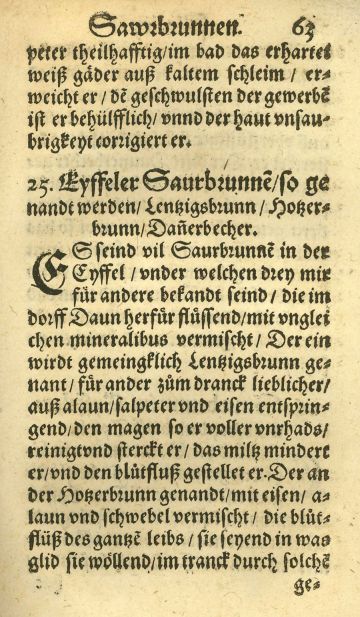 Sawrbrunnen. 63
peter theilhafftig/im bad das erhartet
weiß gäder auß kaltem schleim / er-
weicht er / dē geschwulsten der gewerbē
ist er behülfflich/ vnnd der haut vnsau-
brigkeyt corrigiert er.
25. Eyffeler Saurbrunnē/so ge
nandt werden/ Lentzigsbrunn / Hotzer-
brunn/Dañerbecher.
ES seind vil Saurbrunnē in der
Eyffel / vnder welchen drey mir
für andere bekandt seind / die im
dorff Daun herfür flüssend/mit vnglei
chen mineralibus vermischt / Der ein
wirdt gemeingklich Lentzigsbrunn ge-
nant / für ander zům dranck lieblicher/
auß alaun/salpeter vnd eisen entsprin-
gend/den magen so er voller vnrhads/
reinigt vnd sterckt er / das miltz mindert
er/vnd den blůtfluß gestellet er. Der an
der Hotzerbrunn genandt/mit eisen/ a-
laun vnd schwebel vermischt / die blůt-
flüß des gantzē leibs / sie seyend in was
glid sie wöllend/im tranck durch solchē
ge-